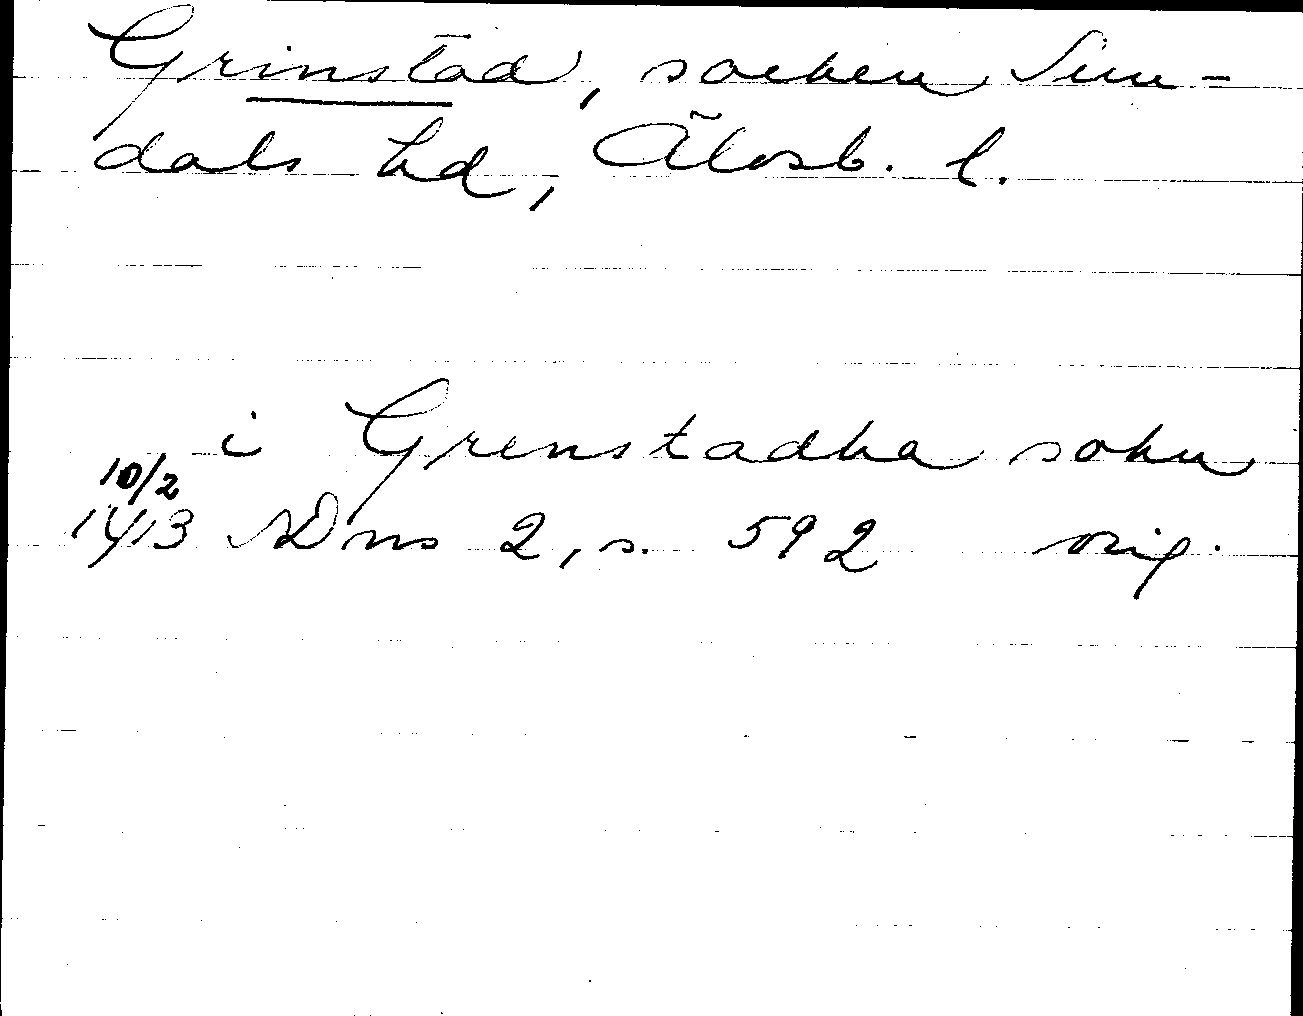 Grinstad, socken Sun-
dals hd, Älvsb. l.
i Grenstadha sokn
10/2
1413 SDns 2, s. 592 orig.